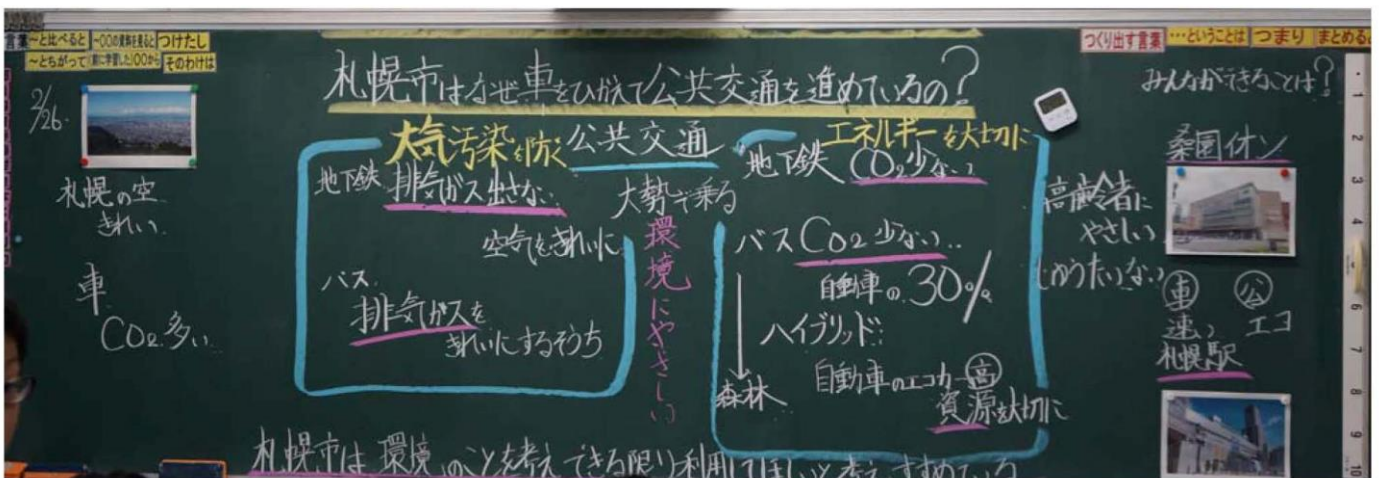 言葉 ～と比べると ～〇〇の資料を見ると つけたし
～とちがって (前に学習した)〇〇から そのわけは
つくり出す言葉 …ということは つまり まとめると
札幌市はなぜ車をひかえて公共交通を進めているの?
2/26
札幌の空
きれい
車
CO2多い
大気汚染を防ぐ
地下鉄 排気ガス出さない
空気をきれいに
バス
排気ガスを
きれいにするそうち
公共交通
大勢で乗る
環境にやさしい
エネルギーを大切に
地下鉄 CO2少ない
バス CO2少ない
自動車の30%
ハイブリッド
自動車のエコカー高
森林
資源を大切に
高齢者に
やさしい
じゅうたいない
みんなができることは?
桑園イオン
車 公
速い エコ
札幌駅
札幌市は環境のことを考えできる限り利用してほしいと考えすすめている
1
2
3
4
6
7
8
9
10